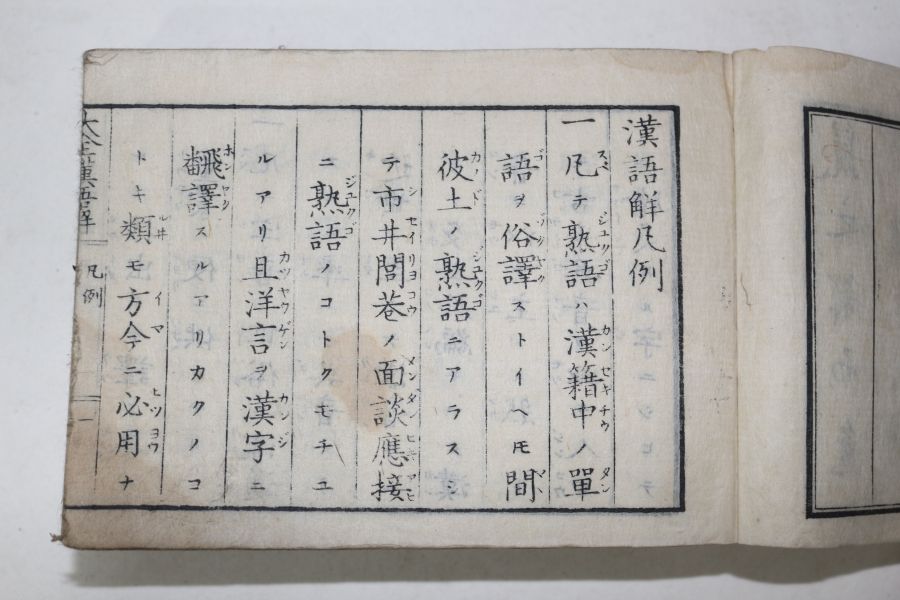 漢語解凡例
一凡テ熟語ハ漢籍中ノ單
語ヲ俗譯ストイヘ𪜈間
彼土ノ熟語ニアラスシ
テ市井閭巷ノ面談應接
ニ熟語ノコトクモチユ
ルアリ且洋言ヲ漢字ニ
飜譯スルアリカクノコ
トキ類モ方今ニ必用ナ
凡例
一